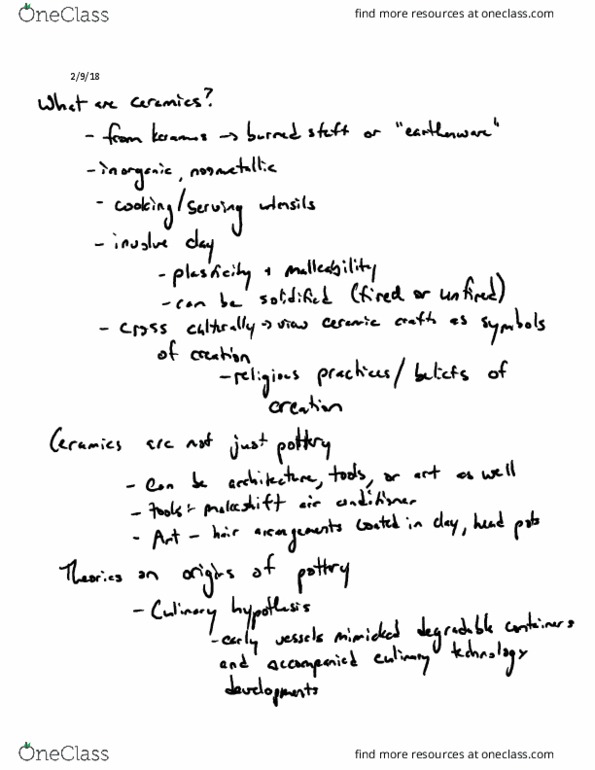 OneClass
find more resources at oneclass.com
2/9/18
What are ceramics?
- from keramos → burned stuff or "earthenware"
- inorganic, nonmetallic
- cooking/serving utensils
- involve clay
- plasticity + malleability
- can be solidified (fired or unfired)
- cross culturally → view ceramic crafts as symbols
of creation
- religious practices / beliefs of
creation
Ceramics are not just pottery
- can be architecture, tools, or art as well
- tools - makeshift air conditioner
- Art - hair arrangements coated in clay, head pots
Theories on origins of pottery
- Culinary hypothesis
- early vessels mimicked degradable containers
and accompanied culinary technology
developments
OneClass
find more resources at oneclass.com